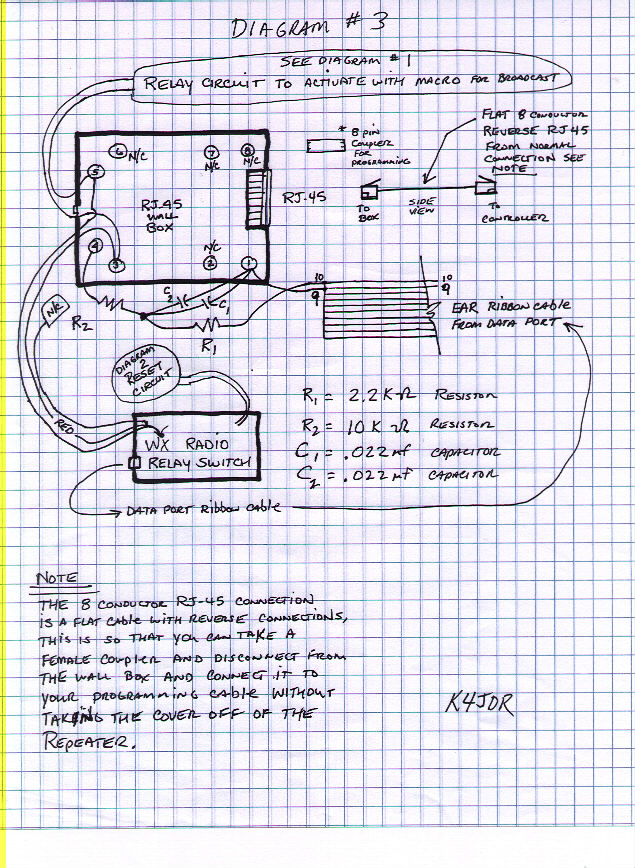 DIAGRAM # 3
SEE DIAGRAM # 1
RELAY CIRCUIT TO ACTIVATE WITH MACRO FOR BROADCAST
* 8 PIN
COUPLER
FOR
PROGRAMMING
FLAT 8 CONDUCTOR
REVERSE RJ-45
FROM NORMAL
CONNECTION SEE
NOTE
TO
BOX
SIDE
VIEW
TO
CONTROLLER
6 N/C
7
N/C
8
N/C
5
RJ-45
WALL
BOX
RJ-45
4
3
N/C
2
1
C2
C1
R2
R1
10
9
10
9
EAR RIBBON CABLE
FROM DATA PORT
DIAGRAM
2
RESET
CIRCUIT
RED
WX RADIO
RELAY SWITCH
R1 = 2.2 K Ω RESISTOR
R2 = 10 K Ω RESISTOR
C1 = .022 mf CAPACITOR
C2 = .022 mf CAPACITOR
DATA PORT RIBBON CABLE
NOTE
THE 8 CONDUCTOR RJ-45 CONNECTION
IS A FLAT CABLE WITH REVERSE CONNECTIONS,
THIS IS SO THAT YOU CAN TAKE A
FEMALE COUPLER AND DISCONNECT FROM
THE WALL BOX AND CONNECT IT TO
YOUR PROGRAMMING CABLE WITHOUT
TAKING THE COVER OFF OF THE
REPEATER.
K4JDR